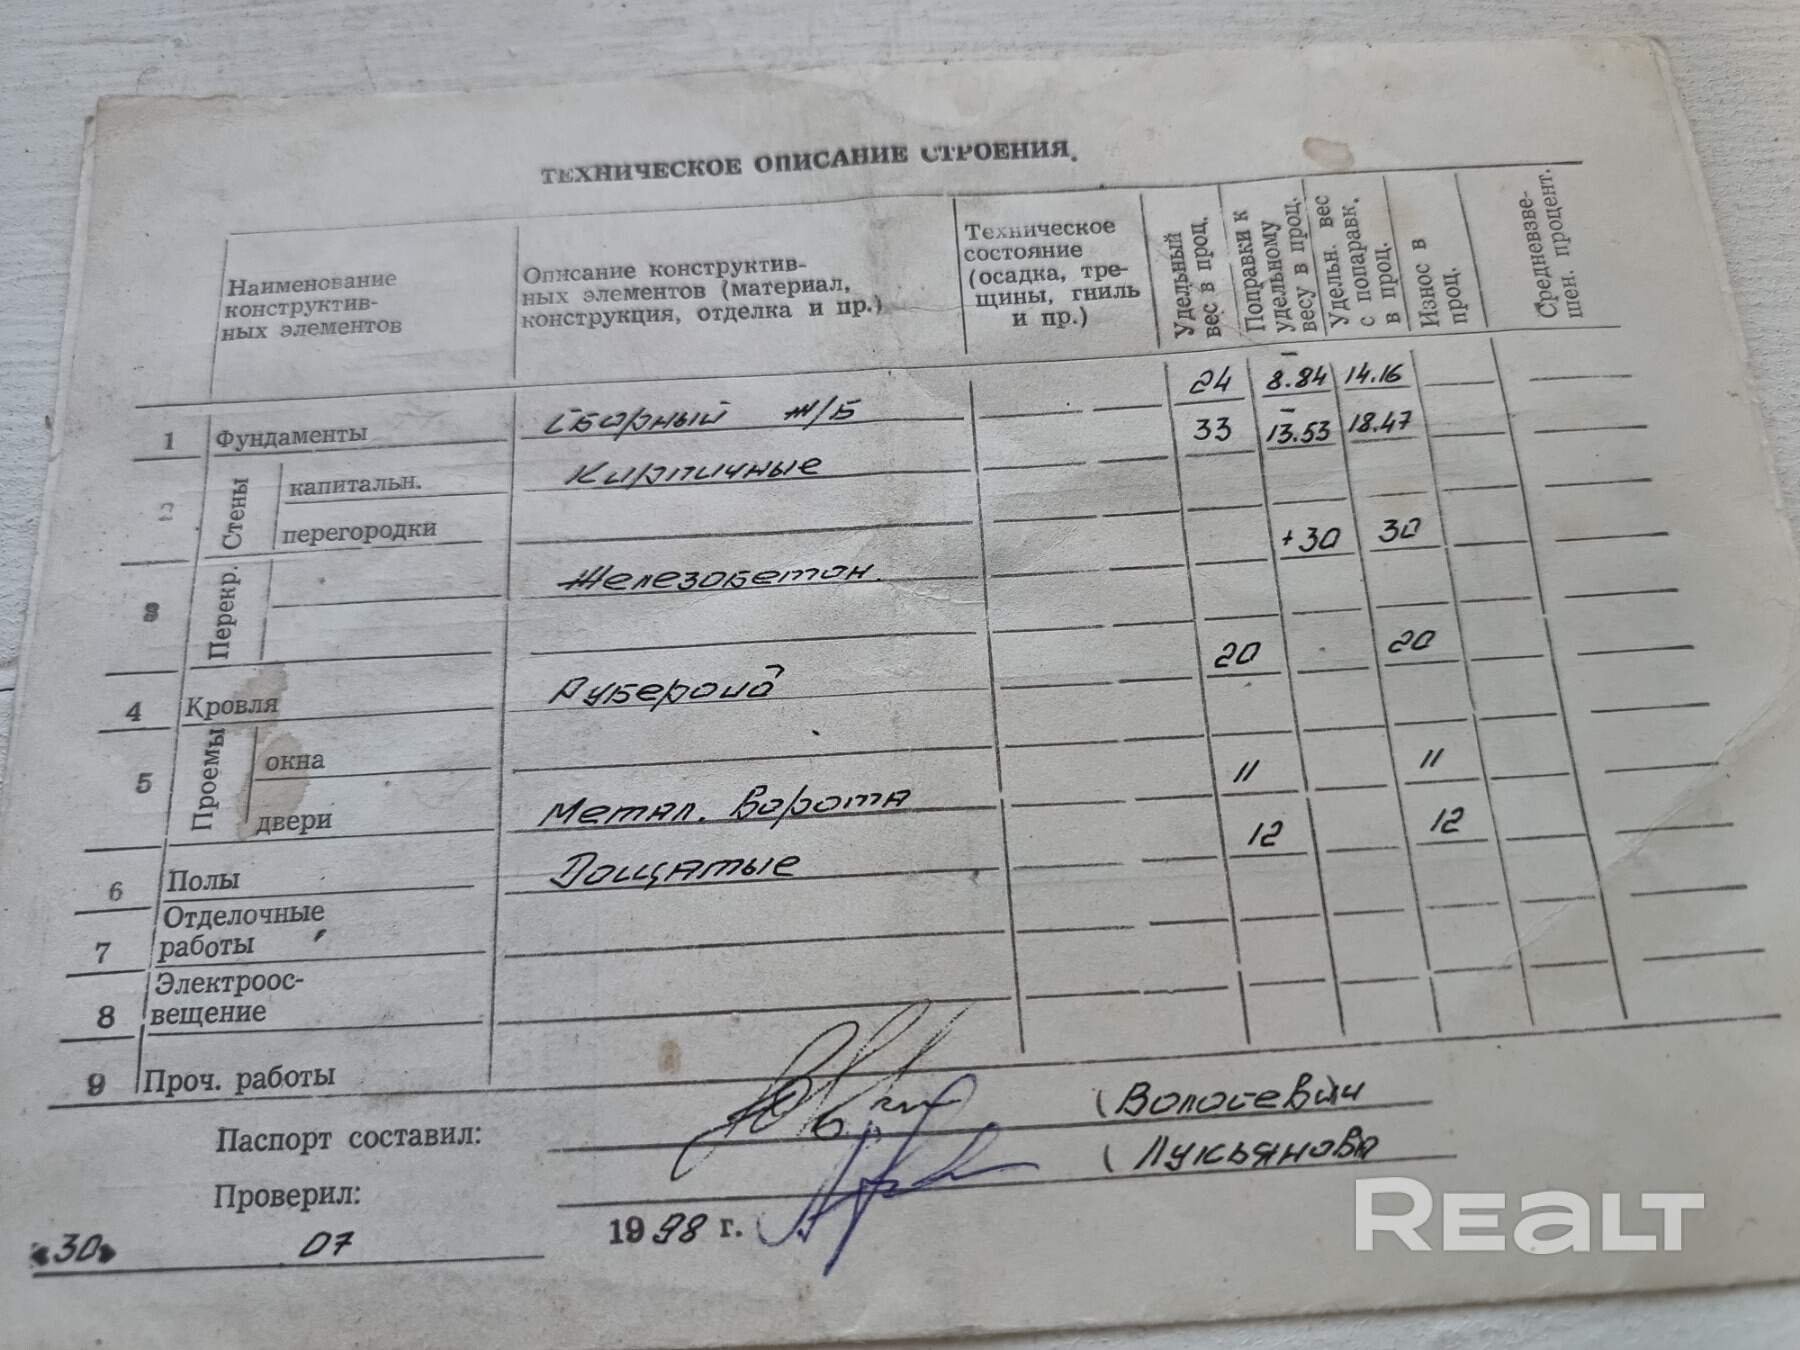 ТЕХНИЧЕСКОЕ ОПИСАНИЕ СТРОЕНИЯ.
Наименование
конструктив-
ных элементов
Описание конструктив-
ных элементов (материал,
конструкция, отделка и пр.)
Техническое
состояние
(осадка, тре-
щины, гниль
и пр.)
Удельный
вес в проц.
Поправки к
удельному
весу в проц.
Удельн. вес
с попаравк.
в проц.
Износ в
проц.
Средневзве-
шен. процент.
1 Фундаменты Сборный ж/б 24 -8.84 14.16
2 Стены капитальн. Кирпичные 33 -13.53 18.47
перегородки
3 Перекр. Железобетон. +30 30
4 Кровля Рубероид 20 20
5 Проемы окна
двери Метал. ворота 11 11
6 Полы Дощатые 12 12
7 Отделочные
работы
8 Электроос-
вещение
9 Проч. работы
Паспорт составил:
Проверил: (Лукьянова
«30» 07 1998 г.
REALT